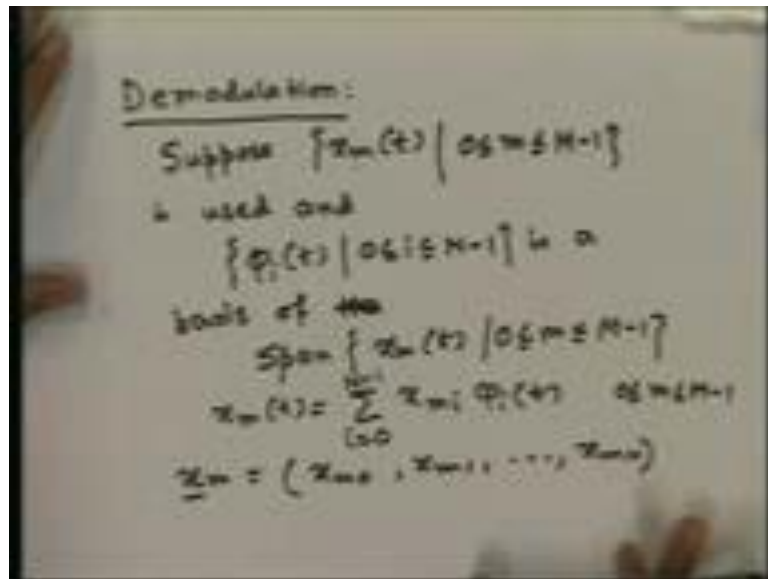 Demodulation:
Suppose {x_m(t) | 0≤m≤M-1}
is used and
{φ_i(t) | 0≤i≤N-1} is a
basis of
span {x_m(t) | 0≤m≤M-1}
x_m(t) = Σ_{i=0}^{N-1} x_{mi} φ_i(t)   0≤m≤M-1
x_m = (x_{m0}, x_{m1}, ..., x_{mn})